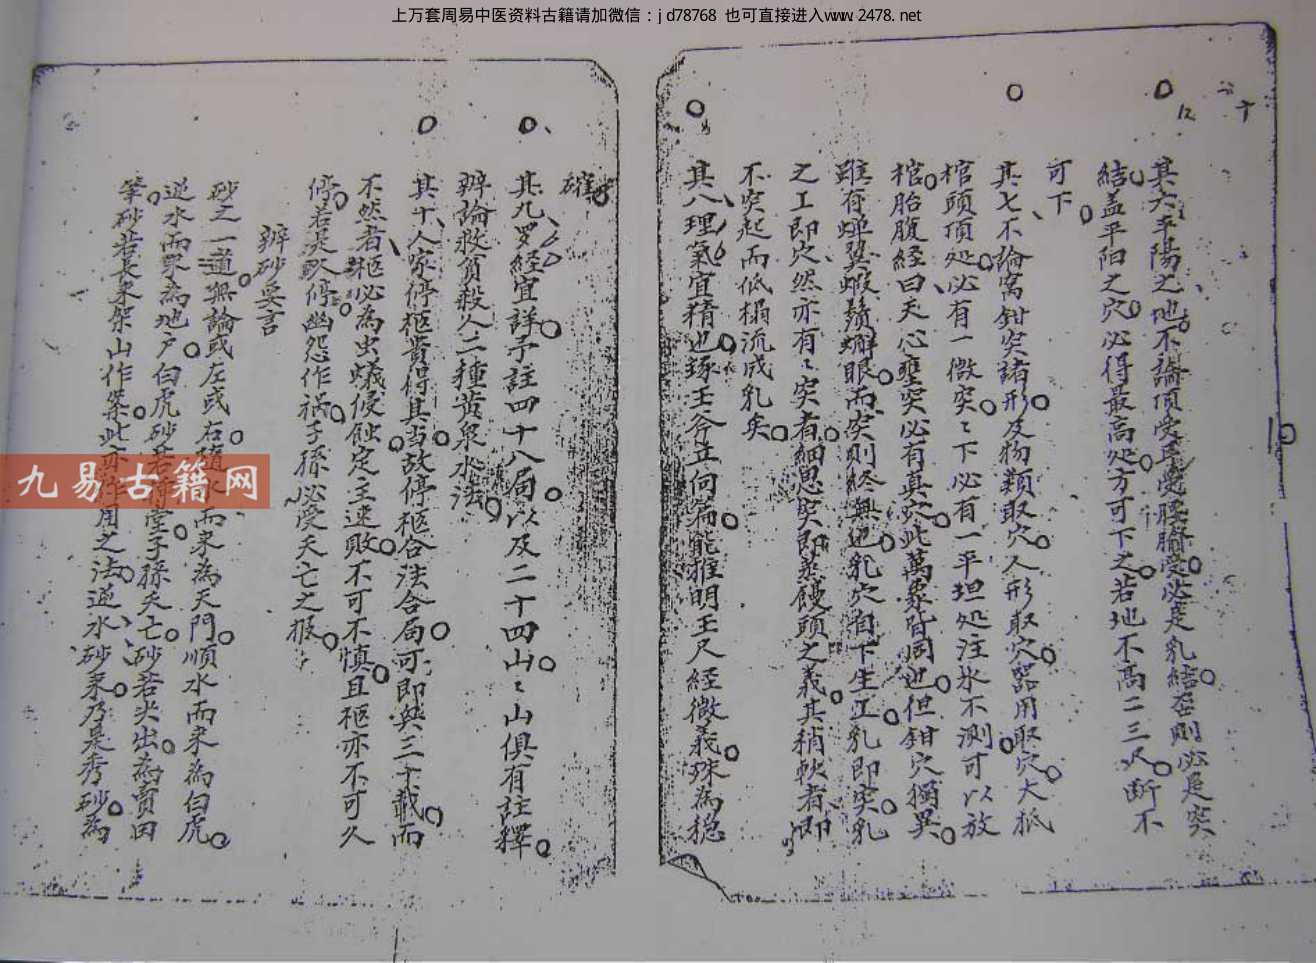 上万套周易中医资料古籍请加微信：jd78768 也可直接进入www.2478.net
其六平陽之地不論頂受耳受腰受臍受必是乳結否則必是突
結盖平阳之穴必得最高处方可下之若地不高二三尺断不
可下
其七不論窩鉗突諸形及物類取穴人形取穴器用取穴大抵
棺頭頂处必有一微突〻下必有一平坦处注水不測可以放
棺胎腹經曰天心壅突必有真穴此萬象皆同也但鉗穴獨異
雖有蟬翼蝦鬚蠏眼而突則終無也乳穴自下生上乳即突乳
之上即穴然亦有〻突者細思突即蒸饅頭之義其稍軟者即
不突起而低榻流成乳矣
其八理氣宜精也琢玉斧并何扁能推明玉尺經微義殊為穏
確
其九罗經宜詳予註四十八局以及二十四山〻山俱有註釋
辨論救貧殺人二種黄泉水法
其十人家停柩貴得其当故停柩合法合局可即與三十載而
不然者柩必為虫蟻侵蝕定主速敗不可不慎且柩亦不可久
停若是久停幽怨作祸子孫必受夭亡之报
辨砂要言
砂之一道無論或左或右随水而来為天門順水而来為白虎
逆水而来為地户白虎砂若槌堂子孫夭亡砂若尖出為賣田
筆砂若長来架山作案此亦作用之法逆水砂来乃是秀砂為
九易古籍网